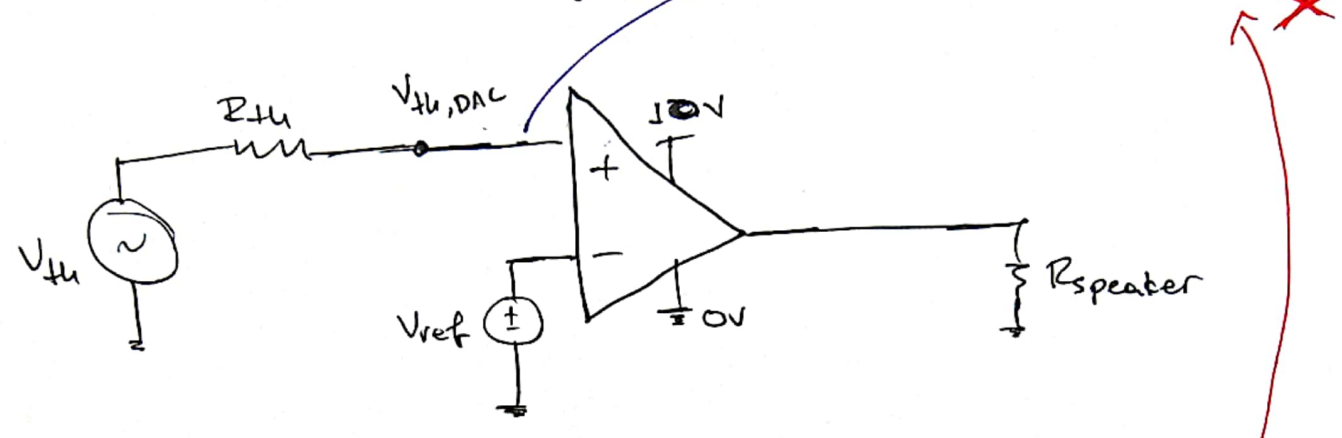 Rth
Vth,DAC
10V
+
Vth
~
−
Vref
±
0V
Rspeaker